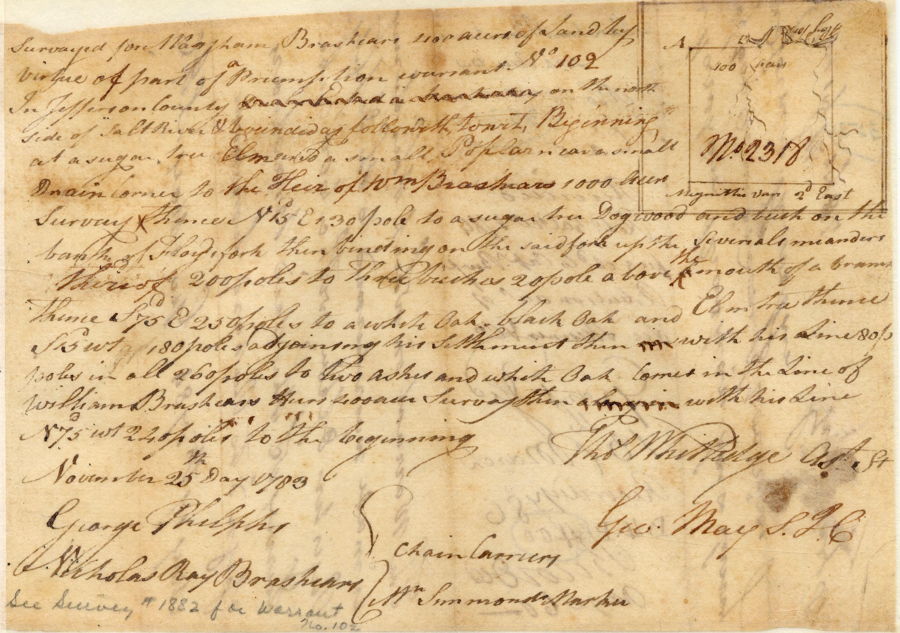 Surveyed for Marsham Brashears 400 acres of Land by
virtue of part of a Preemption warrant No 102
In Jefferson County on the north
side of Salt River & bounded as followeth, towit, Beginning
at a sugar tree Elm and a small Poplar near a small
Drain corner to the Heir of Wm Brashears 1000 Acre
Survey thence No 15 E 130 pole to a sugar tree Dogwood and buck on the
bank of Floyds fork then binding on the said fork up the Severals meanders
thereof 200 poles to three buckas 20 pole above the mouth of a branch
thence Sd 75 E 250 poles to a white Oak black Oak and Elm tree thence
Sd 15 wt 180 poles adjoining his Settlement then with his Line 80 p
poles in all 260 poles to two ashes and white Oak Corner in the Line of
William Brashears Heirs 400 acre Survey then with his Line
Nd 75 wt 240 poles to the beginning
November 25th Day 1783
Thos Whitledge Asst St
Geo. May S. J. C
George Phelphs
Nicholas Ray Brashears
Chain Carriers
Wm Simmonds Marker
See Survey # 1882 for Warrant
No. 102
A
400 acres
No 2318
Magnittic Var. 2d East